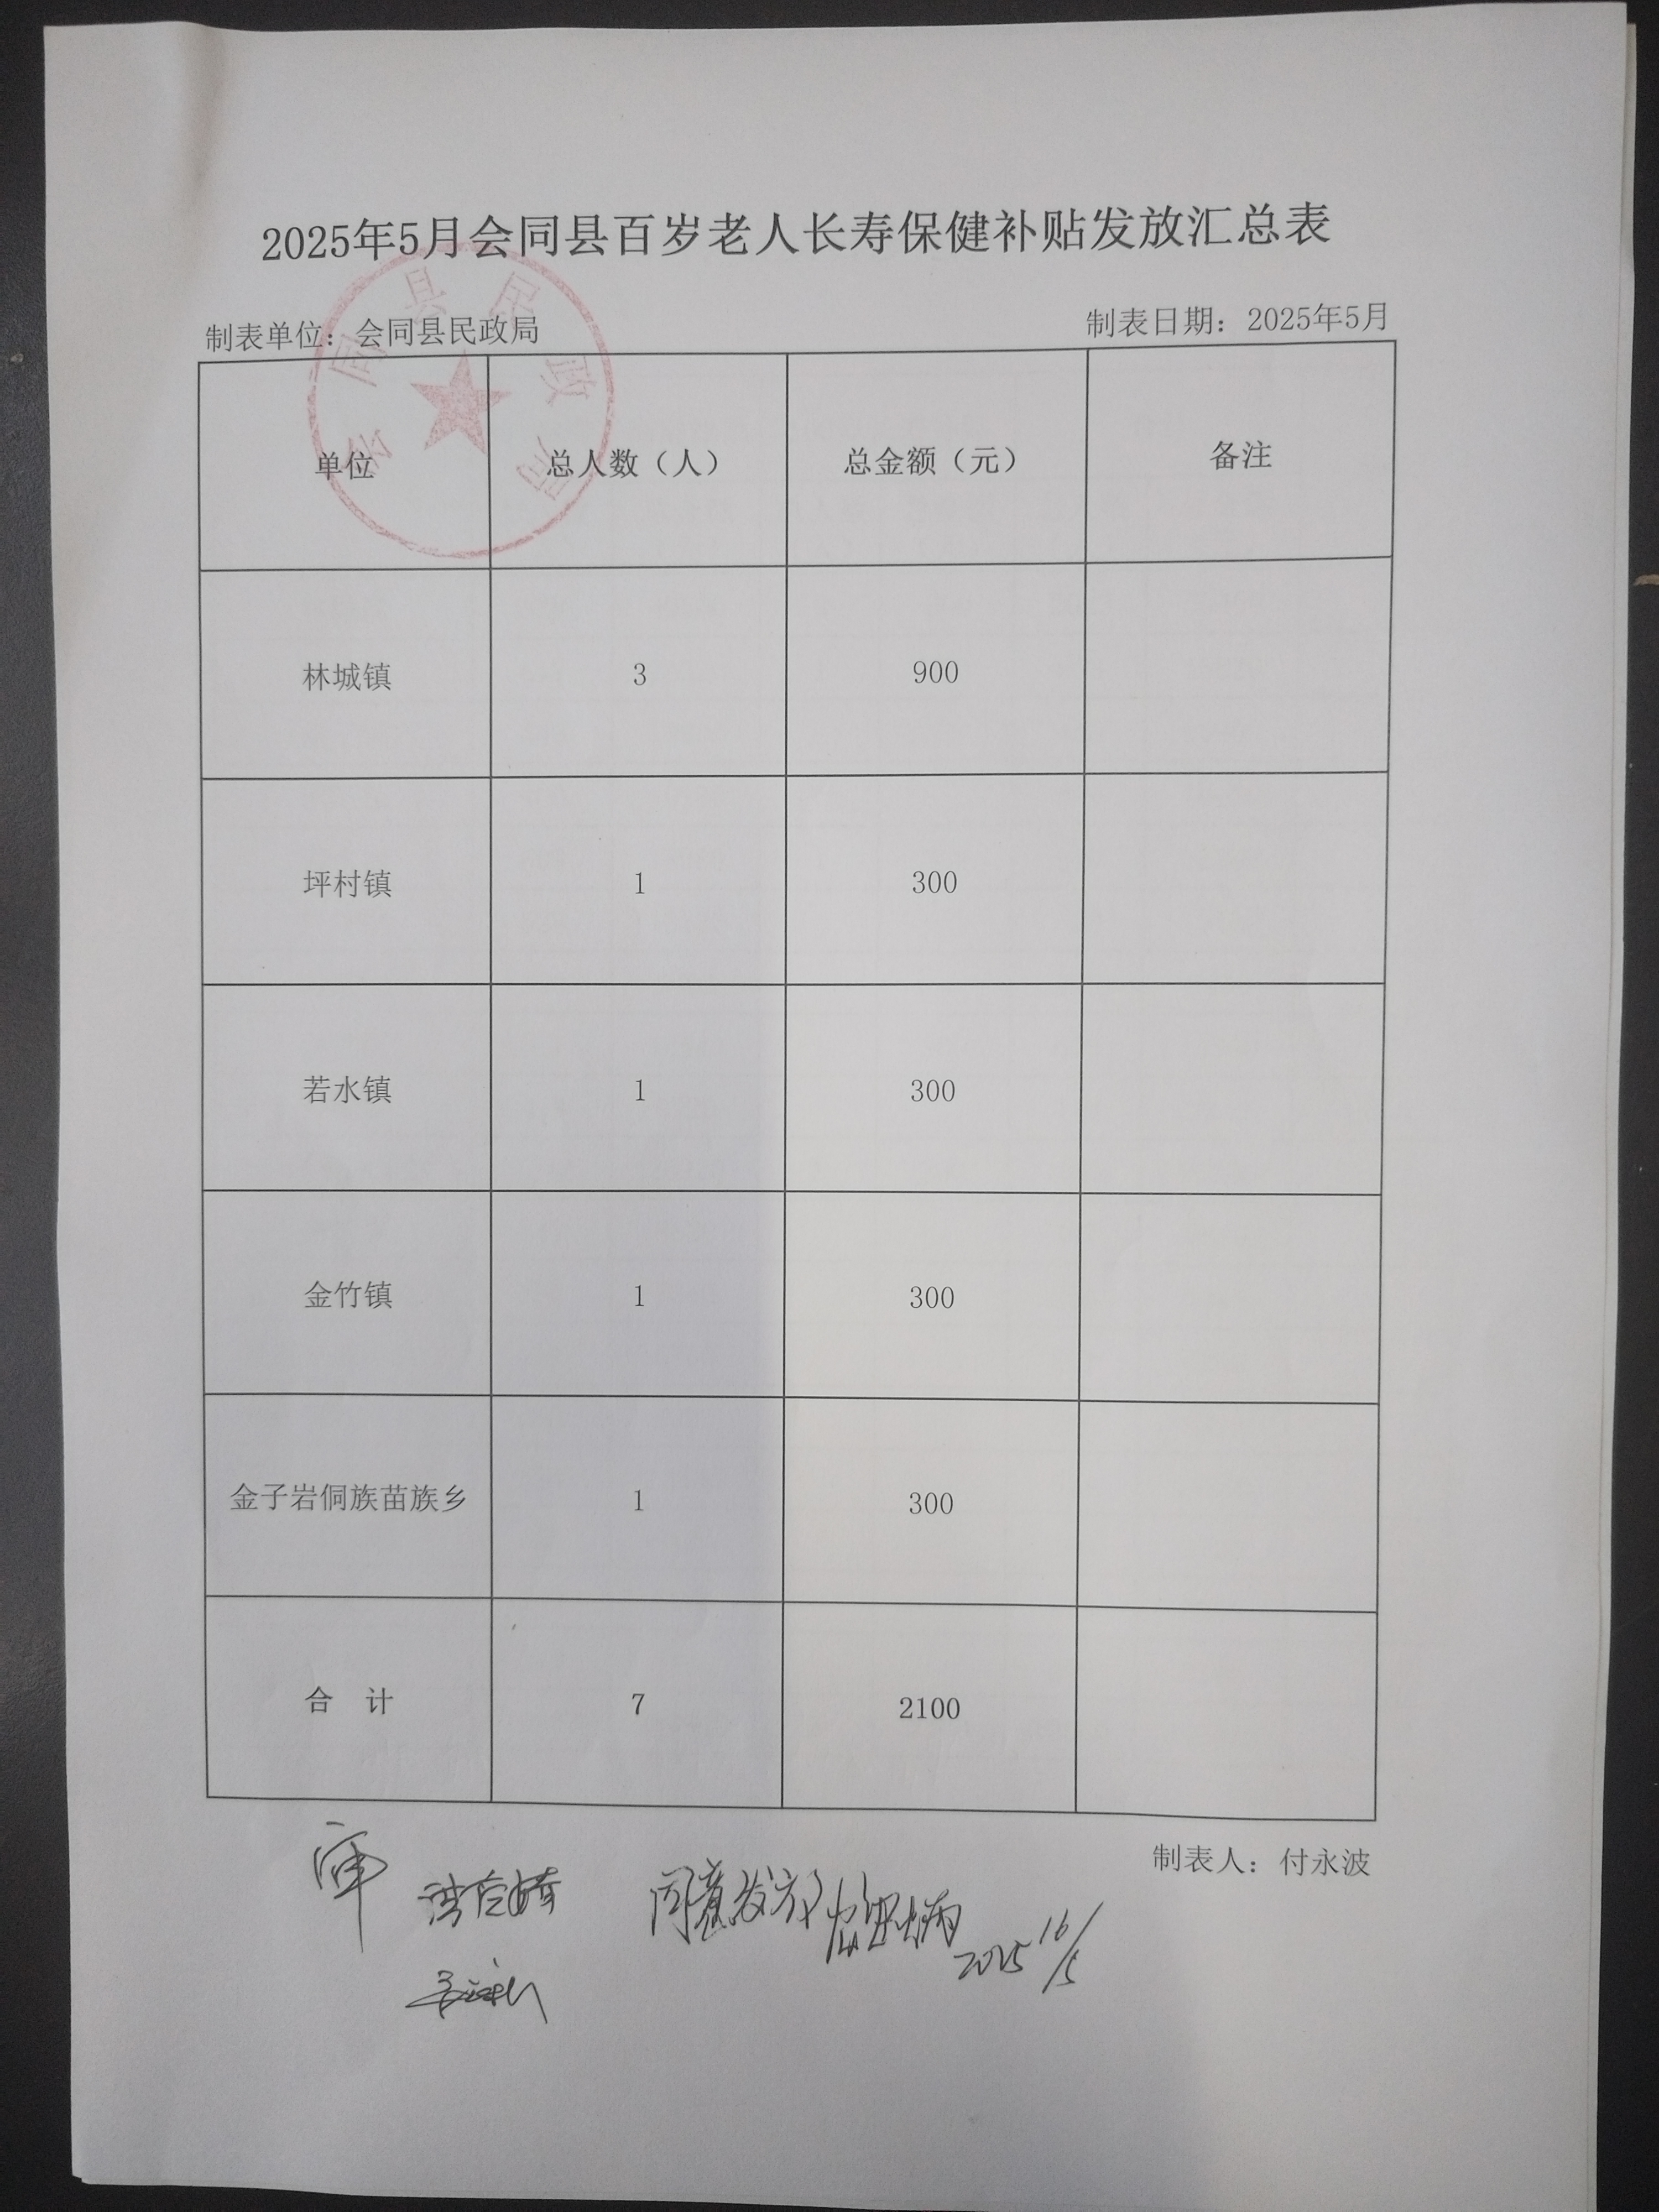 2025年5月会同县百岁老人长寿保健补贴发放汇总表
制表单位：会同县民政局 制表日期：2025年5月
会同县民政局
单位 总人数（人） 总金额（元） 备注
林城镇 3 900
坪村镇 1 300
若水镇 1 300
金竹镇 1 300
金子岩侗族苗族乡 1 300
合 计 7 2100
制表人：付永波
审
同意发放
2025 16/5